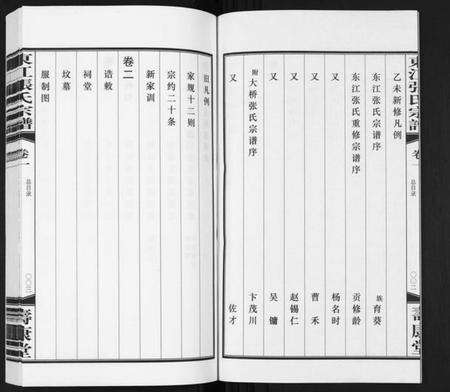 東江張氏宗譜
卷一
总目录
〇〇二
壽康堂
乙未新修凡例
东江张氏宗谱序 族育葵
东江张氏重修宗谱序 贡修龄
又 杨名时
又 曹禾
又 赵锡仁
又 吴镛
附大桥张氏宗谱序 卞茂川
又 佐才
旧凡例
家规十二则
宗约二十条
新家训
卷二
诰敕
祠堂
坟墓
服制图
東江張氏宗譜
卷一
总目录
〇〇三
壽康堂